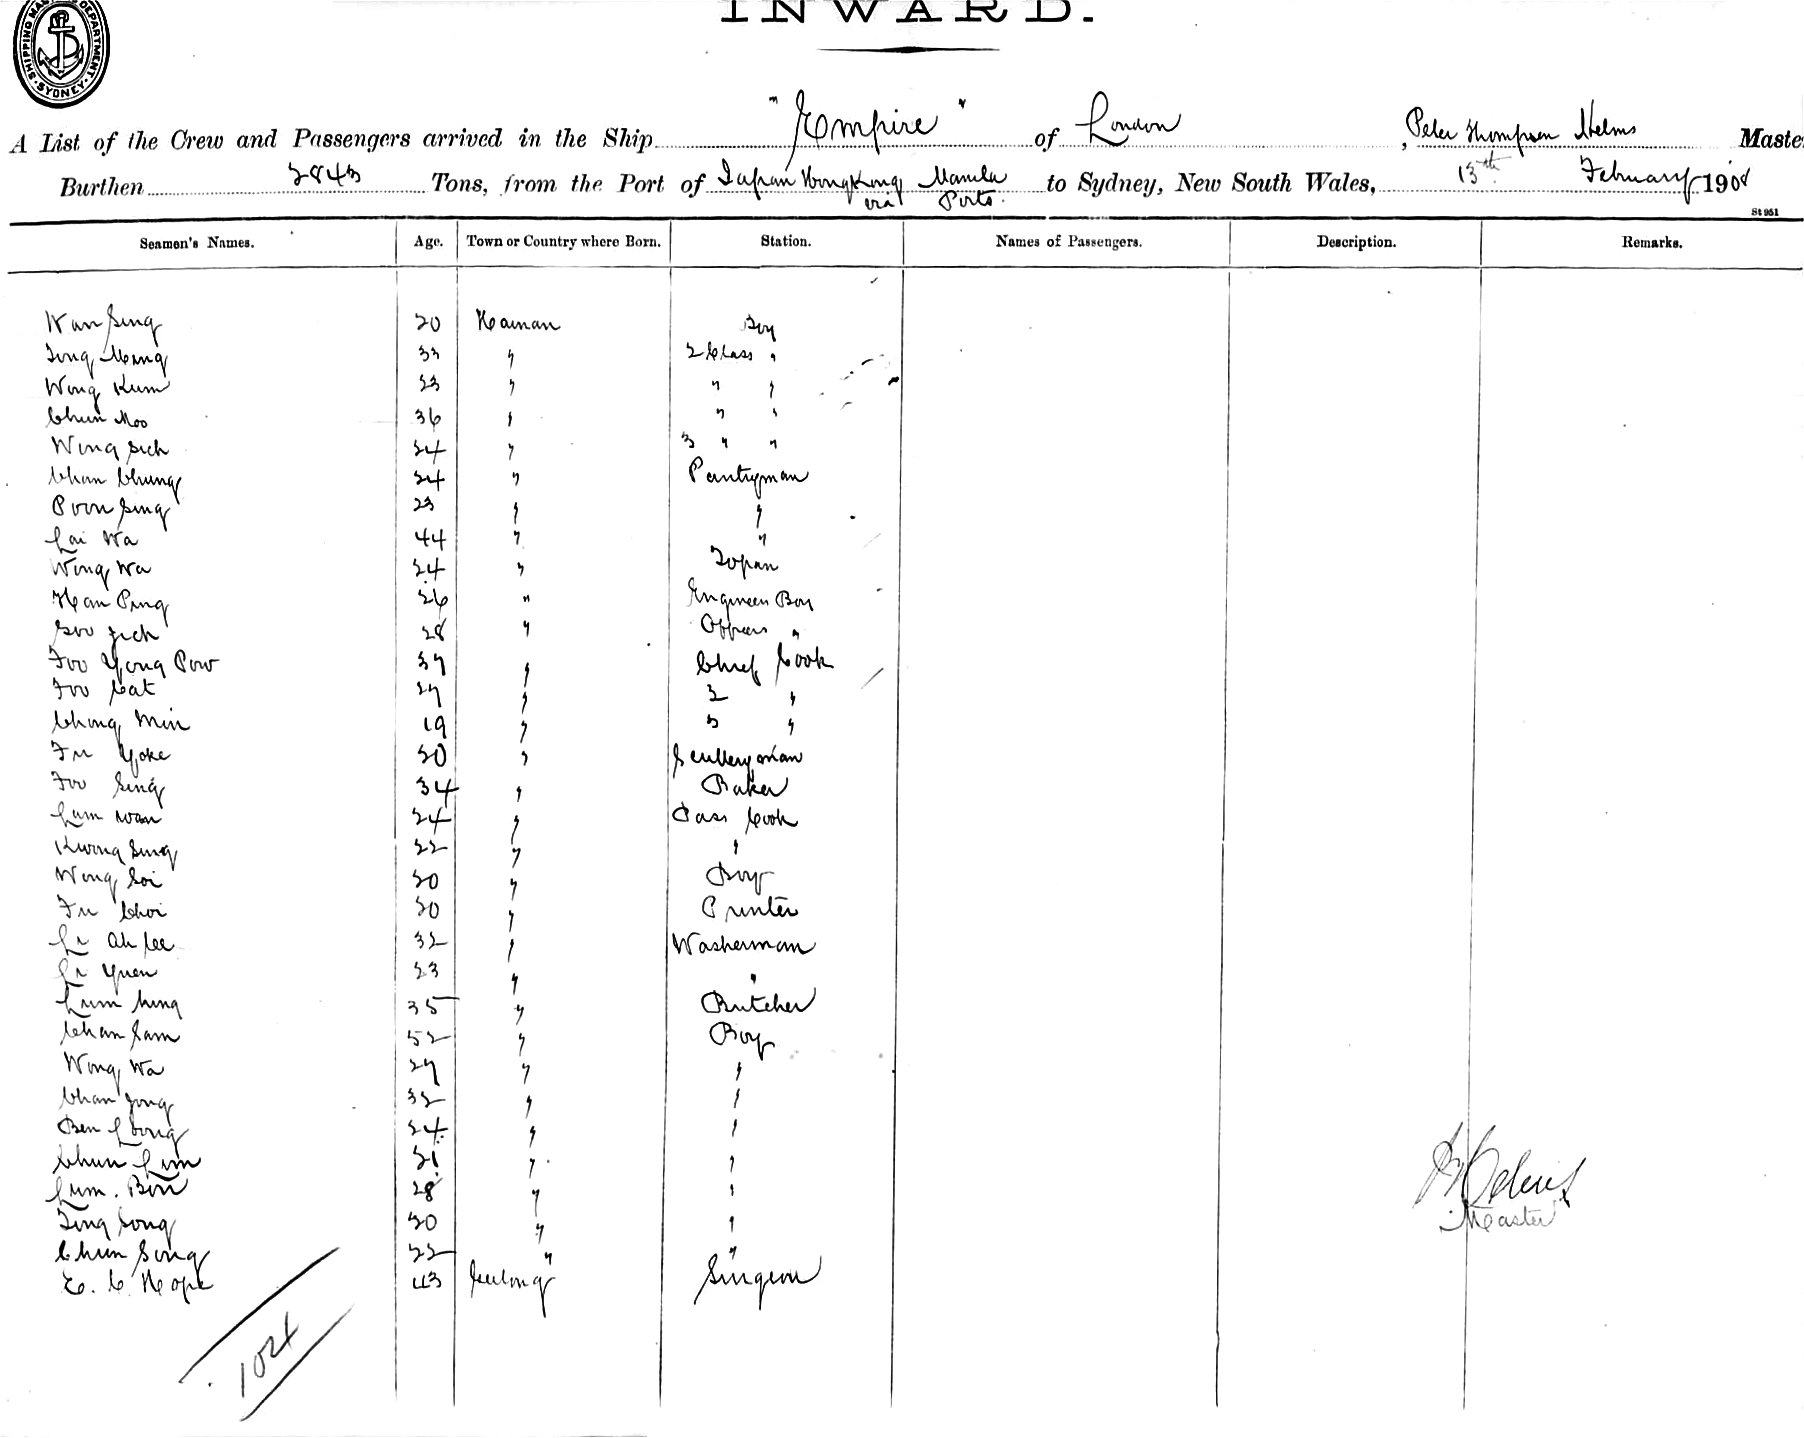 SHIPPING MASTER'S DEPARTMENT SYDNEY
INWARD.
A List of the Crew and Passengers arrived in the Ship "Empire" of London, Peter Thompson Helms Maste
Burthen 2843 Tons, from the Port of Japan HongKong Manila to Sydney, New South Wales, 13th February 1908
via Ports.
St 951
Seamen's Names. Age. Town or Country where Born. Station. Names of Passengers. Description. Remarks.
Wan Sing 20 Hainan Boy
Tong Ming 33 " 2 Class "
Wong Kum 23 " " "
Chun Moo 36 " " "
Wong Sich 24 " 3 " "
Chan Chung 24 " Pantryman
Poon Sing 23 " "
Lai Wa 44 " "
Wong Wa 24 " Topan
Han Ping 26 " Engineers Boy
Goo 28 " Officers "
Foo Yong Pow 37 " Chief Cook
Foo Cat 27 " 2 "
Chong Min 19 " 3 "
Fu Yoke 30 " Sculleryman
Foo Sing 34 " Baker
Lam Wan 24 " Pass Cook
Kwong Sing 22 " "
Wong Soi 20 " Boy
Fu Choi 30 " Printer
Li Ah Lee 32 " Washerman
Li Yuen 23 " "
Lum Ming 35 " Butcher
Chan Sam 52 " Boy
Wong Wa 27 " "
Chan Jong 32 " "
Ben Loong 24 " "
Chun Lim 21 " "
Lum. Bin 28 " "
Ting Song 20 " "
Chun Song 22 " "
E. C. Hope 43 Geelong Surgeon
Helms
Master
102